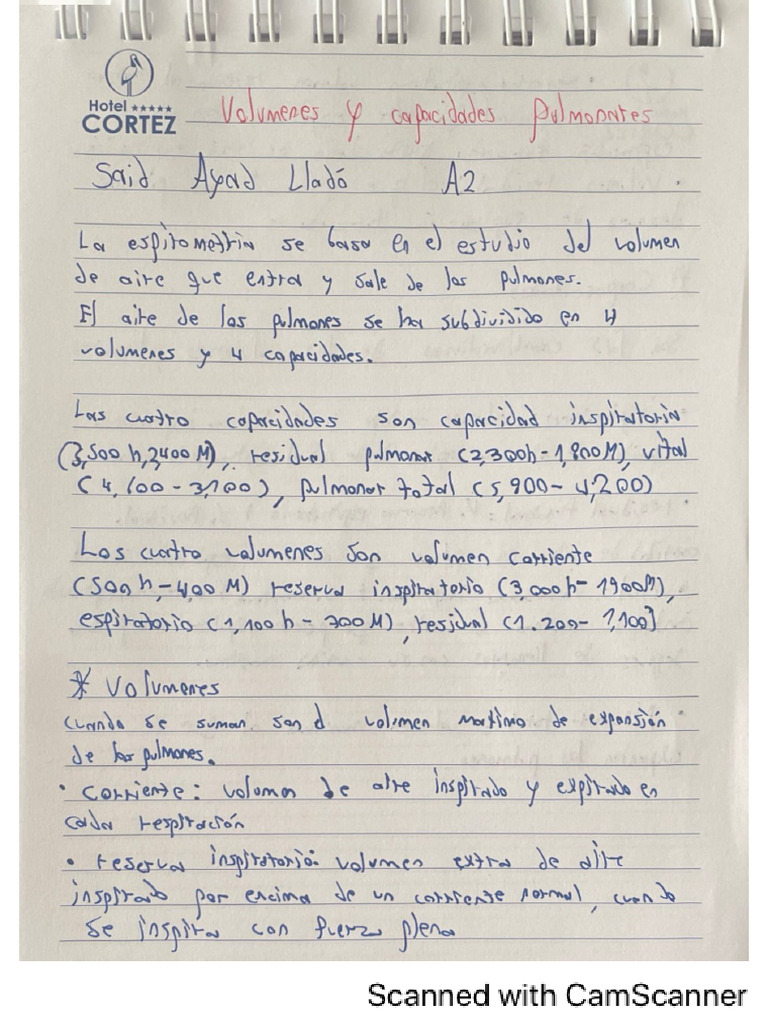 Hotel ★★★★★
CORTEZ
Volumenes y capacidades Pulmonares
Said Ayad Lladó A2
La espirometria se basa en el estudio del volumen
de aire que entra y sale de los pulmones.
El aire de los pulmones se ha subdividido en 4
volumenes y 4 capacidades.
Las cuatro capacidades son capacidad inspiratoria
(3,500 h, 2400 M), residual pulmonar (2,300h - 1,800M), vital
(4,600 - 3,100), pulmonar total (5,900 - 4,200)
Los cuatro volumenes son volumen corriente
(500 h - 400 M) reserva inspiratorio (3,000 h - 1900M),
espiratorio (1,100 h - 700 M), residual (1.200 - 1,100)
* Volumenes
cuando se suman son el volumen maximo de expansión
de los pulmones.
• corriente: volumen de aire inspirado y espirado en
cada respiración
• reserva inspiratorio: volumen extra de aire
inspirado por encima de un corriente normal, cuando
se inspira con fuerza plena
Scanned with CamScanner